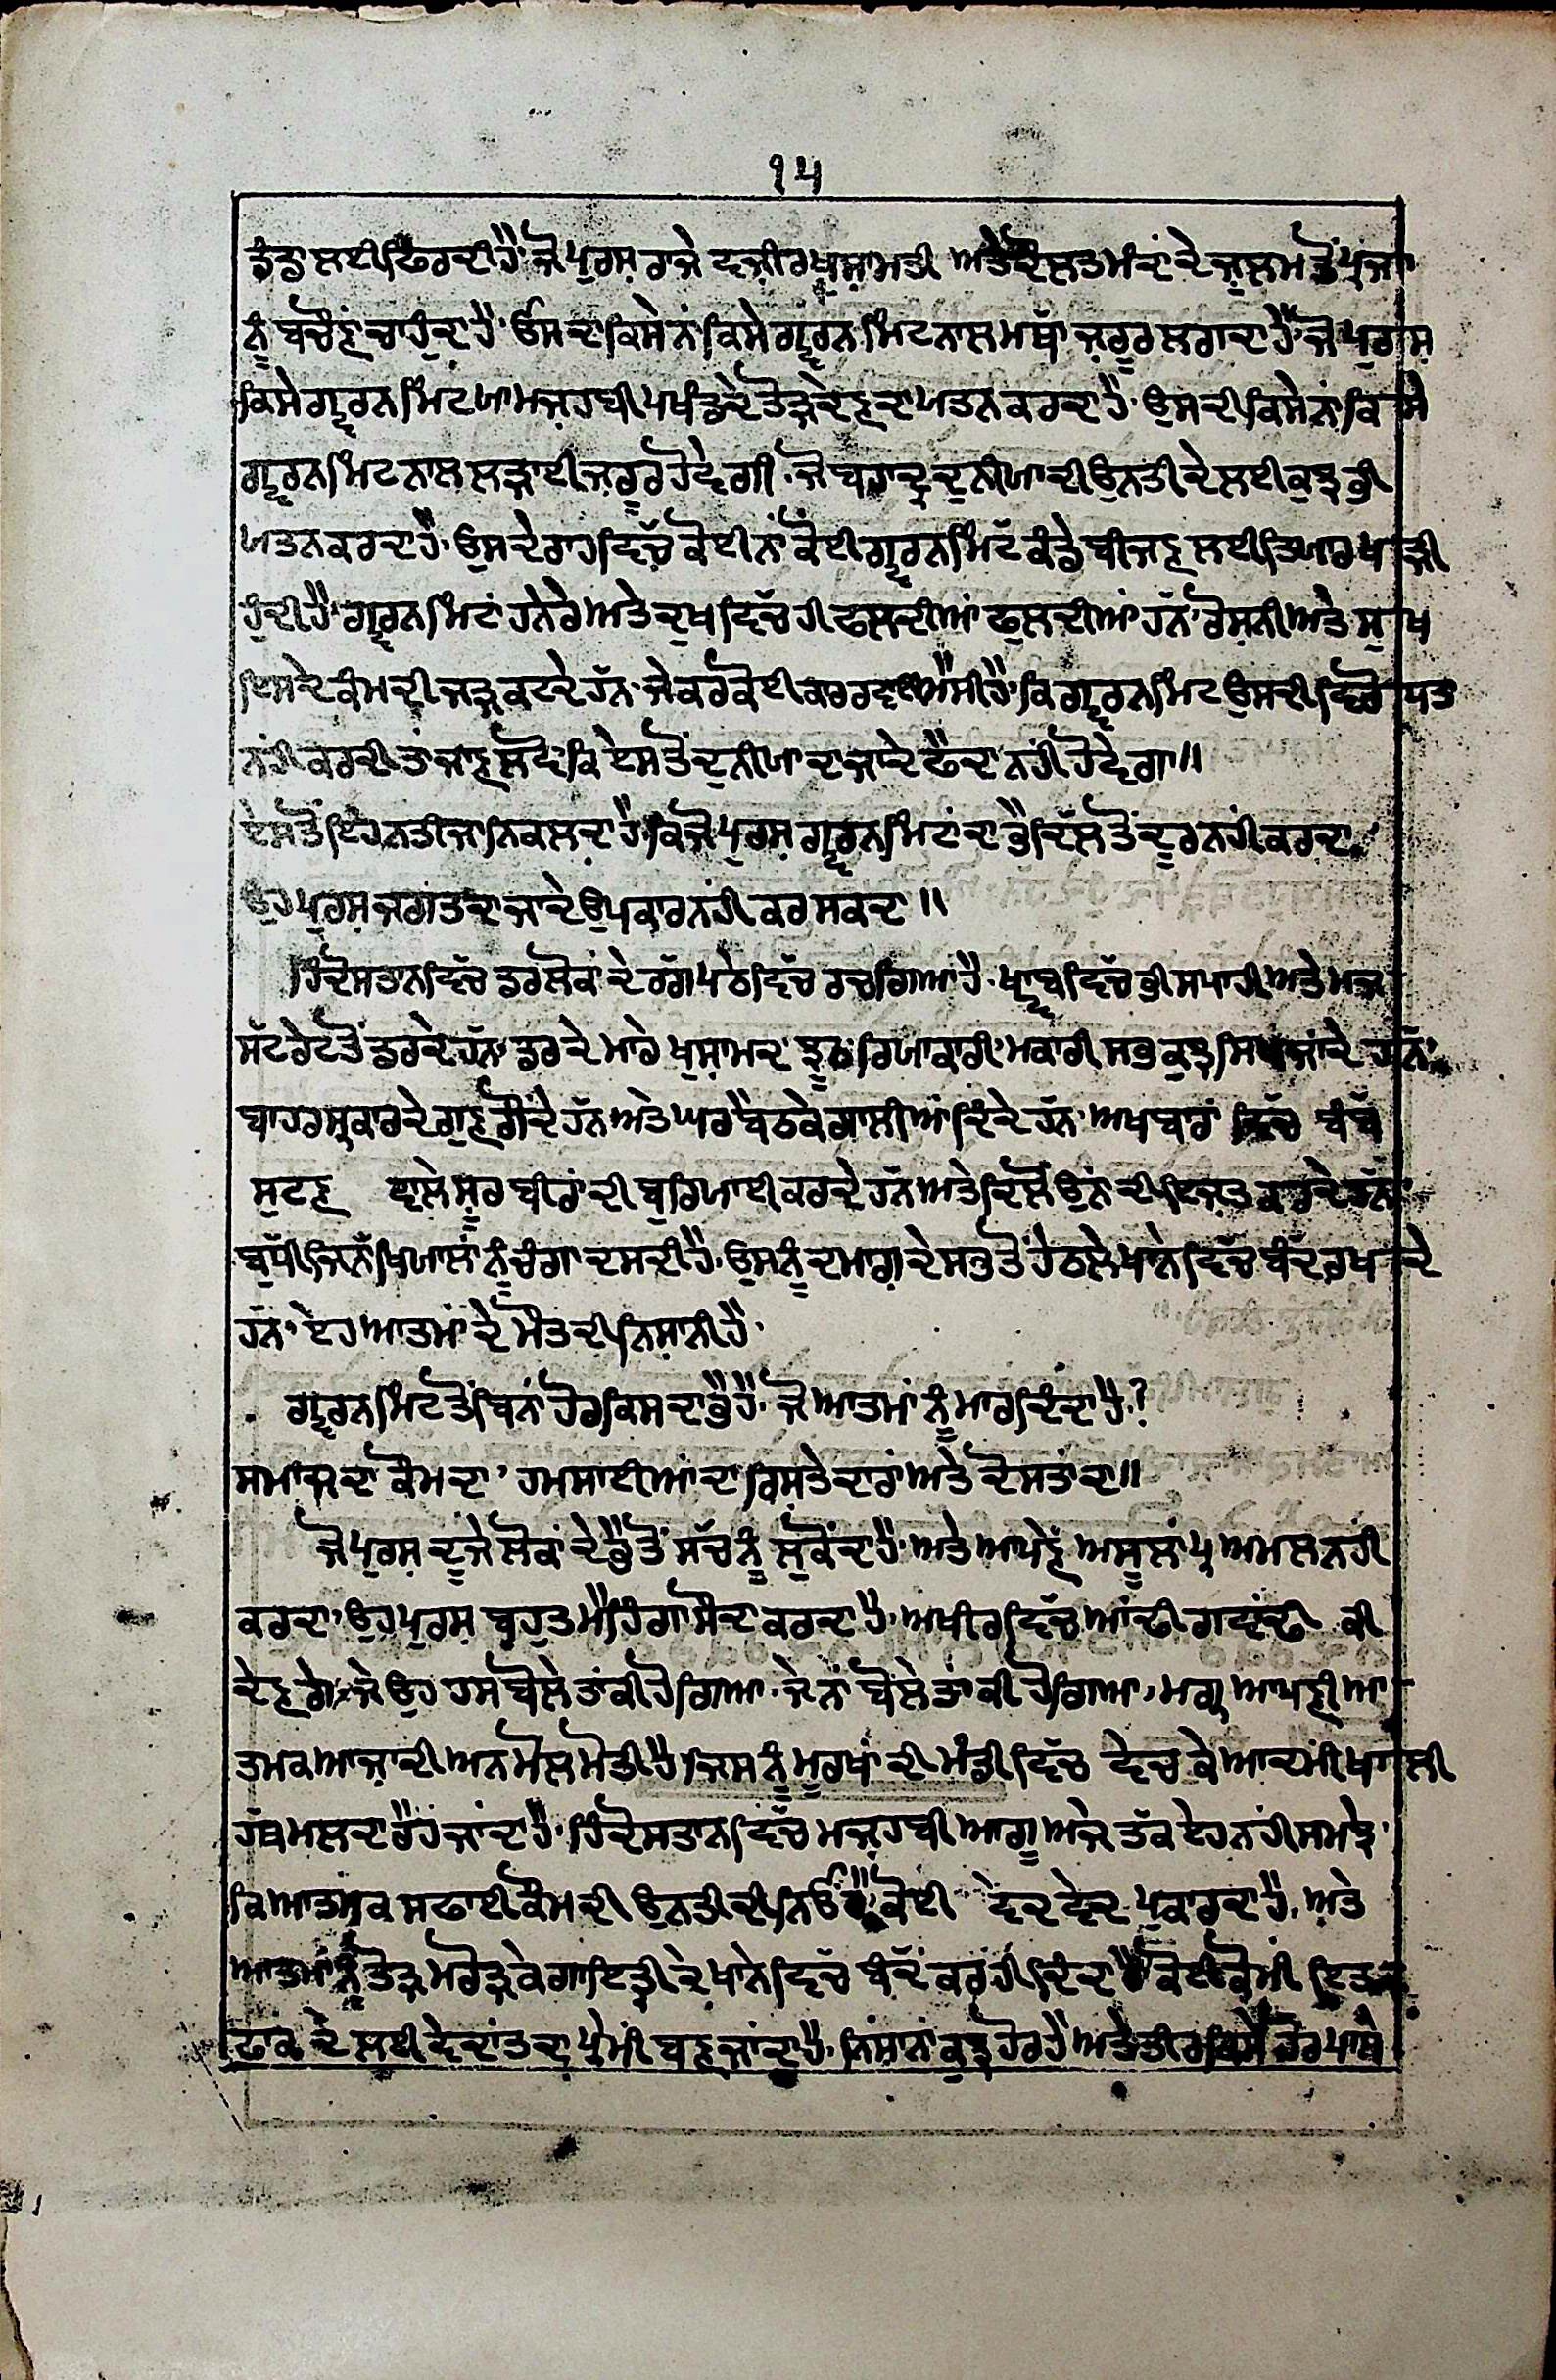 ੧੫
ਡੰਡਾ ਲਈ ਫਿਰਦੀ ਹੈ· ਜੋ ਪੁਰਸ਼ ਰਾਜੇ ਵਜ਼ੀਰ ਖੁਸ਼ਾਮਤੀ ਅਤੇ ਦੌਲਤਮੰਦਾਂ ਦੇ ਜ਼ੁਲਮ ਤੋਂ ਪ੍ਰਜਾ
ਨੂੰ ਬਚੌਣਾਂ ਚਾਹੁੰਦਾ ਹੈ· ਉਸਦਾ ਕਿਸੇ ਨਾਂ ਕਿਸੇ ਗ੍ਵਰਨਮਿੰਟ ਨਾਲ ਮਥਾਂ ਜ਼ਰੂਰ ਲਗਦਾ ਹੈ· ਜੋ ਪੁਰਸ਼
ਕਿਸੇ ਗ੍ਵਰਨਮਿੰਟ ਯਾ ਮਜ਼ਹਬੀ ਪਖੰਡ ਦੇ ਤੋੜ ਦੇਣ ਦਾ ਯਤਨ ਕਰਦਾ ਹੈ· ਉਸਦੀ ਕਿਸੇ ਨਾਂ ਕਿਸੇ
ਗ੍ਵਰਨਮਿੰਟ ਨਾਲ ਲੜਾਈ ਜ਼ਰੂਰ ਹੋਵੇਗੀ· ਜੋ ਬਹਾਦ੍ਰ ਦੁਨੀਯਾ ਦੀ ਉਨਤੀ ਦੇ ਲਈ ਕੁਝ ਭੀ
ਯਤਨ ਕਰਦਾ ਹੈ· ਉਸਦੇ ਰਾਹ ਵਿੱਚ ਕੋਈ ਨਾਂ ਕੋਈ ਗ੍ਵਰਨਮਿੰਟ ਕੰਡੇ ਬੀਜਣ ਲਈ ਤਿਯਾਰ ਖੜੀ
ਹੁੰਦੀ ਹੈ· ਗ੍ਵਰਨਮਿੰਟਾਂ ਹਨੇਰੇ ਅਤੇ ਦੁਖ ਵਿੱਚ ਹੀ ਫਲਦੀਆਂ ਫੁਲਦੀਆਂ ਹਨ· ਰੋਸ਼ਨੀ ਅਤੇ ਸੁਖ
ਇਸਦੇ ਕੰਮ ਦੀ ਜੜ੍ਹ ਕਟਦੇ ਹੱਨ· ਜੇਕਰ ਕੋਈ ਕਾਰਰਵਾਈ ਐਸੀ ਹੈ· ਕਿ ਗ੍ਵਰਨਮਿੰਟ ਉਸਦੀ ਵਿਰੋਧਤਾ
ਨਹੀਂ ਕਰਦੀ ਤਾਂ ਜਾਣ ਲਵੋ ਕਿ ਏਸ ਤੋਂ ਦੁਨੀਯਾ ਦਾ ਜ਼ਾਦੇ ਫੈਦਾ ਨਹੀਂ ਹੋਵੇਗਾ॥
ਏਸ ਤੋਂ ਇਹ ਨਤੀਜਾ ਨਿਕਲਦਾ ਹੈ ਕਿ ਜੋ ਪੁਰਸ਼ ਗ੍ਵਰਨਮਿੰਟਾਂ ਦਾ ਭੈ ਦਿਲ ਤੋਂ ਦੂਰ ਨਹੀਂ ਕਰਦਾ
ਉਹ ਪੁਰਸ਼ ਜਗਤ ਦਾ ਜ਼ਾਦੇ ਉਪਕਾਰ ਨਹੀਂ ਕਰ ਸਕਦਾ॥
ਹਿੰਦੋਸਤਾਨ ਵਿੱਚ ਡਰ ਲੋਕਾਂ ਦੇ ਰਗ ਪਠੇ ਵਿੱਚ ਰਚ ਗਿਆ ਹੈ· ਖ੍ਵਾਬ ਵਿੱਚ ਭੀ ਸਪਾਹੀ ਅਤੇ ਮਜ
ਸੱਟਰੇਟ ਤੋਂ ਡਰਦੇ ਹਨ· ਡਰ ਦੇ ਮਾਰੇ ਖੁਸ਼ਾਮਦ ਝੂਠ ਰਿਯਾਕਾਰੀ· ਮਕਾਰੀ ਸਭ ਕੁਝ ਸਿਖ ਜਾਂਦੇ ਹਨ·
ਬਾਹਰ ਸ੍ਰਕਾਰ ਦੇ ਗੁਣ ਗੌਂਦੇ ਹੱਨ ਅਤੇ ਘਰ ਬੈਠਕੇ ਗਾਲੀਆਂ ਦਿੰਦੇ ਹੱਨ· ਅਖਬਾਰਾਂ ਵਿੱਚ ਬੰਬ
ਸੁਟਣ ਵਾਲੇ ਸੂਰਬੀਰਾਂ ਦੀ ਬੁਰਿਯਾਈ ਕਰਦੇ ਹੱਨ ਅਤੇ ਦਿਲੋਂ ਉਨਾਂ ਦੀ ਇਜ਼ਤ ਕਰਦੇ ਹੱਨ
ਬੁਧੀ ਜਿਨਾਂ ਖਿਯਾਲਾਂ ਨੂੰ ਚੰਗਾ ਦਸਦੀ ਹੈ· ਉਸਨੂੰ ਦਮਾਗ਼ ਦੇ ਸਭ ਤੋਂ ਹੇਠਲੇ ਖਾਨੇ ਵਿੱਚ ਬੰਦ ਰਖਦੇ
ਹੱਨ· ਏਹ ਆਤਮਾਂ ਦੇ ਮੌਤ ਦੀ ਨਿਸ਼ਾਨੀ ਹੈ·
ਗ੍ਵਰਨਮਿੰਟ ਤੋਂ ਬਿਨਾਂ ਹੋਰ ਕਿਸਦਾ ਭੈ ਹੈ· ਜੋ ਆਤਮਾਂ ਨੂੰ ਮਾਰ ਦਿੰਦਾ ਹੈ·?
ਸਮਾਜ ਦਾ ਕੌਮ ਦਾ, ਹਮਸਾਈਆਂ ਦਾ ਰਿਸ਼ਤੇਦਾਰਾਂ ਅਤੇ ਦੋਸਤਾਂ ਦਾ॥
ਜੋ ਪੁਰਸ਼ ਦੂਜੇ ਲੋਕਾਂ ਦੇ ਭੈ ਤੋਂ ਸੱਚ ਨੂੰ ਲੁਕੌਂਦਾ ਹੈ· ਅਤੇ ਆਪਣੇ ਅਸੂਲਾਂ ਪ੍ਰ ਅਮਲ ਨਹੀਂ
ਕਰਦਾ· ਉਹ ਪੁਰਸ਼ ਬਹੁਤ ਮੈਹਿੰਗਾ ਸੌਦਾ ਕਰਦਾ ਹੈ· ਅਖੀਰ ਵਿੱਚ ਆਂਢੀ ਗਵਾਂਢੀ ਕੀ
ਦੇਣਗੇ ਜੇ ਉਹ ਹਸ ਬੋਲੇ ਤਾਂ ਕੀ ਹੋ ਗਿਆ· ਜੇ ਨਾਂ ਬੋਲੇ ਤਾਂ ਕੀ ਹੋ ਗਿਆ, ਮਗ੍ਰ ਆਪਣੀ ਆ
ਤਮਕ ਆਜ਼ਾਦੀ ਅਨਮੋਲ ਮੋਤੀ ਹੈ ਜਿਸਨੂੰ ਮੂਰਖਾਂ ਦੀ ਮੰਡੀ ਵਿੱਚ ਵੇਚ ਕੇ ਆਦਮੀਂ ਖਾਲੀ
ਹੱਥ ਮਲਦਾ ਰੈਹ ਜਾਂਦਾ ਹੈ· ਹਿੰਦੋਸਤਾਨ ਵਿੱਚ ਮਜ਼ਹਬੀ ਆਗੂ ਅਜੇ ਤੱਕ ਏਹ ਨਹੀਂ ਸਮਝੇ·
ਕਿ ਆਤਮਕ ਸਫਾਈ ਕੌਮ ਦੀ ਉਨਤੀ ਦੀ ਨਿਉਂ ਹੈ· ਕੋਈ ਵੇਦ ਵੇਦ ਪੁਕਾਰਦਾ ਹੈ, ਅਤੇ
ਆਤਮਾਂ ਨੂੰ ਤੋੜ ਮਰੋੜ ਕੇ ਗਾਇਤ੍ਰੀ ਦੇ ਖਾਨੇ ਵਿੱਚ ਬੰਦ ਕਰ ਹੀ ਦਿੰਦਾ ਹੈ ਕੋਈ ਕੌਮੀਂ
ਦੇ ਲਈ ਵੇਦਾਂਤ ਦਾ ਪ੍ਰੇਮੀਂ ਬਣ ਜਾਂਦਾ ਹੈ· ਨਿਸ਼ਾਨਾਂ ਕੁਝ ਹੋਰ ਹੈ ਅਤੇ ਤੀਰ ਕਿਸੇ ਹੋਰ ਪਾਸੇ